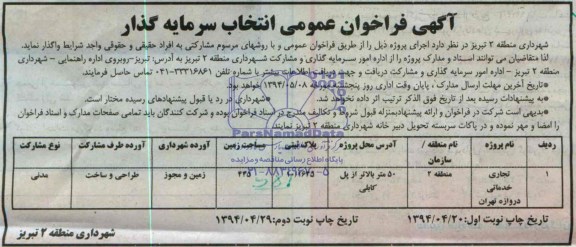 آگهی فراخوان عمومی انتخاب سرمایه گذار
شهرداری منطقه ۲ تبریز در نظر دارد اجرای پروژه ذیل را از طریق فراخوان عمومی و با روشهای مرسوم مشارکتی به افراد حقیقی و حقوقی واجد شرایط واگذار نماید.
لذا متقاضیان می توانند اسناد و مدارک پروژه را از اداره امور سرمایه گذاری و مشارکت شهرداری منطقه ۲ تبریز به آدرس: تبریز-روبروی اداره راهنمایی - شهرداری
منطقه ۲ تبریز - اداره امور سرمایه گذاری و مشارکت دریافت و جهت دریافت اطلاعات بیشتر با شماره تلفن ۳۳۳۱۶۸۶۱-۰۴۱ تماس حاصل فرمایند.
*تاریخ آخرین مهلت ارسال مدارک، پایان وقت اداری روز پنجشنبه مورخه ۱۳۹۴/۰۵/۰۸ خواهد بود.
*به پیشنهادات رسیده بعد از تاریخ فوق الذکر ترتیب اثر داده نخواهد شد. *شهرداری در رد یا قبول پیشنهادهای رسیده مختار است.
*بدیهی است شرکت در فراخوان و ارائه پیشنهاد بمنزله قبول شروط و تکالیف مندرج در اسناد فراخوان بوده و شرکت کنندگان باید تمامی صفحات مدارک و اسناد فراخوان
را امضا و مهر نموده و در پاکات سربسته تحویل دبیر خانه شهرداری منطقه ۲ تبریز نمایند.
ParsNamadData
پایگاه اطلاع رسانی مناقصه و مزایده
ردیف نام پروژه منطقه / سازمان آدرس محل پروژه پلاک ثبتی مساحت زمین آورده شهرداری آورده طرف مشارکت نوع مشارکت
۱ تجاری خدماتی دروازه تهران منطقه ۲ ۵۰ متر بالاتر از پل کابلی ۴۴۵ زمین و مجوز طراحی و ساخت مدنی
تاریخ چاپ نوبت اول: ۱۳۹۴/۰۴/۲۰ تاریخ چاپ نوبت دوم: ۱۳۹۴/۰۴/۲۹
شهرداری منطقه ۲ تبریز